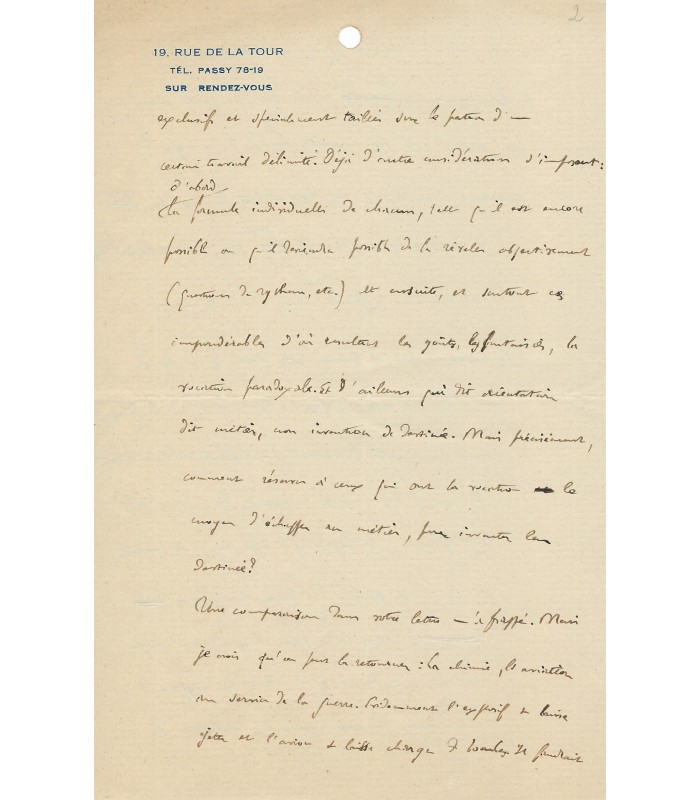 2
19, RUE DE LA TOUR
TÉL. PASSY 78-19
SUR RENDEZ-VOUS
exclusifs et spécialement taillés sur le patron d'un
certain travail délimité. Déjà d'autres considérations s'imposent :
d'abord
la formule individuelle de chacun, telle qu'il est encore
possible ou qu'il deviendra possible de la révéler objectivement
(questions de rythme, etc.) et ensuite, et surtout ces
impondérables d'où résultent les goûts, les fantaisies, la
vocation paradoxale. Et d'ailleurs qui dit orientation
dit métier, non invention de destinée. Mais précisément,
comment réserver à ceux qui ont la vocation le
moyen d'échapper au métier, pour inventer leur
destinée ?
Une comparaison dans votre lettre m'a frappé. Mais
je crois qu'on peut la retourner : la chimie, l'aviation
au service de la guerre. Évidemment l'explosif se laisse
jeter et l'avion se laisse charger de bombes. Il faudrait